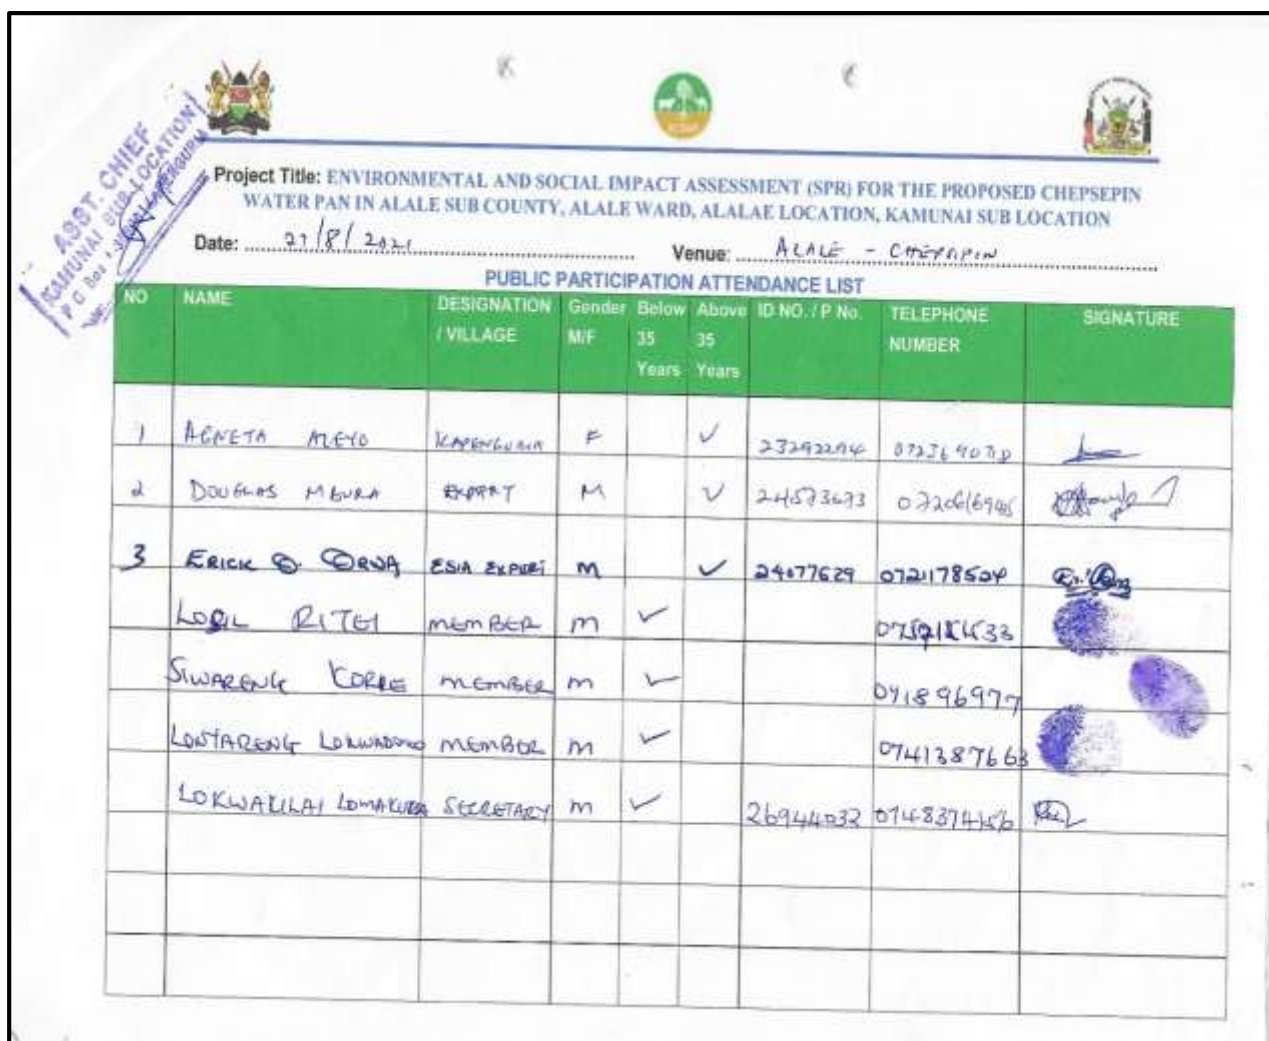 ASST. CHIEF
KAMUNAI SUB LOCATION
Project Title: ENVIRONMENTAL AND SOCIAL IMPACT ASSESSMENT (SPR) FOR THE PROPOSED CHEPSEPIN
WATER PAN IN ALALE SUB COUNTY, ALALE WARD, ALALAE LOCATION, KAMUNAI SUB LOCATION
Date: 27/8/2021 Venue: ALALE -
PUBLIC PARTICIPATION ATTENDANCE LIST
NO NAME DESIGNATION / VILLAGE Gender M/F Below 35 Years Above 35 Years ID NO. / P No. TELEPHONE NUMBER SIGNATURE
1 AGNETA KAPENGURIA F ✓ 23292294
2 DOUGLAS MBURA EXPERT M ✓ 24573673
3 ERICK O. ORWA ESIA EXPERT M ✓ 24077629 0721178504
RITEI MEMBER M ✓
SIWARENG KORRE MEMBER M ✓ 0918 96977
MEMBER M ✓ 0741387663
LOKWAKILAI SECRETARY M ✓ 26944032